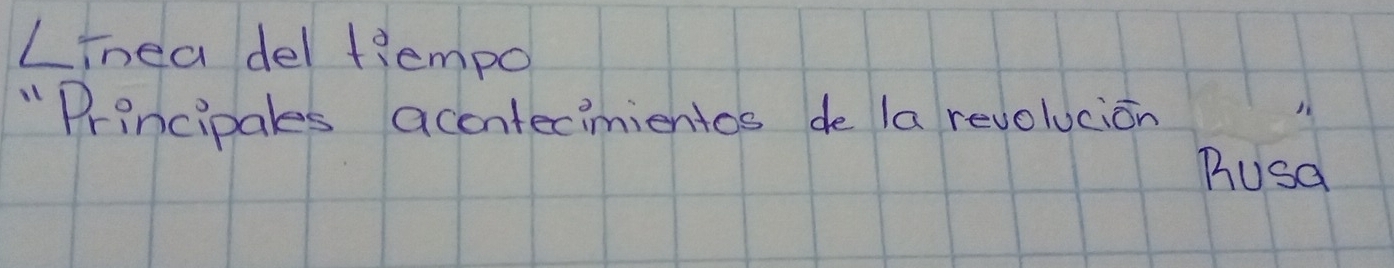 Línea del tiempo
"Principales acontecimientos de la revolución "
Rusa